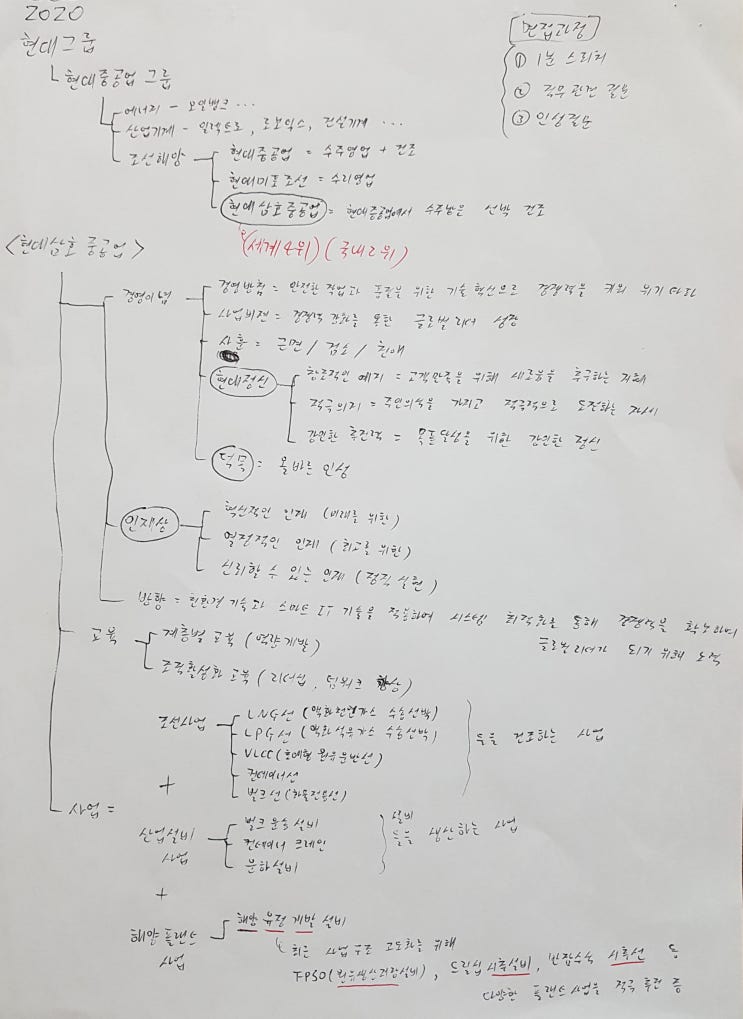 2020
현대그룹
현대중공업 그룹
에너지 - 오일뱅크 ...
산업기계 - 일렉트로, 로보틱스, 건설기계 ...
조선해양
현대중공업 = 수주영업 + 건조
현대미포조선 = 수리영업
현대삼호중공업 = 현대중공업에서 수주받은 선박 건조
(세계4위) (국내2위)
면접과정
① 1분 스피치
② 직무관련 질문
③ 인성질문
<현대삼호 중공업>
경영이념
경영방침 = 안전한 작업과 품질을 위한 기술혁신으로 경쟁력을 키워 위기타파
사업비전 = 경쟁력 강화를 통한 글로벌 리더 성장
사훈 = 근면 / 검소 / 친애
현대정신
창조적인 예지 = 고객만족을 위해 새로움을 추구하는 지혜
적극의지 = 주인의식을 가지고 적극적으로 도전하는 자세
강인한 추진력 = 목표달성을 위한 강인한 정신
덕목 = 올바른 인성
인재상
혁신적인 인재 (미래를 위한)
열정적인 인재 (최고를 위한)
신뢰할 수 있는 인재 (정직 실현)
방향 = 친환경 기술과 스마트 IT 기술을 적용하여 시스템 최적화를 통해 경쟁력을 확보하며
글로벌리더가 되기 위해 노력
교육
계층별 교육 (역량개발)
조직활성화 교육 (리더십, 팀워크 향상)
사업 =
조선사업
LNG선 (액화천연가스 수송선박)
LPG선 (액화석유가스 수송선박)
VLCC (초대형 원유운반선)
컨테이너선
벌크선 (화물전용선)
등을 건조하는 사업
+
산업설비
사업
벌크 운송설비
컨테이너 크레인
운하설비
설비
등을 생산하는 사업
+
해양플랜트
사업
해양 유정 개발 설비
최근 사업 구조 고도화를 위해
FPSO (원유생산저장설비), 드릴십 시추설비, 반잠수식 시추선 등
다양한 플랜트 사업을 적극 추진 중